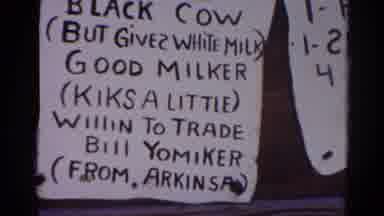 BLACK COW
(BUT GIVEZ WHITE MILK)
GOOD MILKER
(KIKS A LITTLE)
WILLIN TO TRADE
BILL YOMIKER
(FROM, ARKINSA)
1-
1-2
4